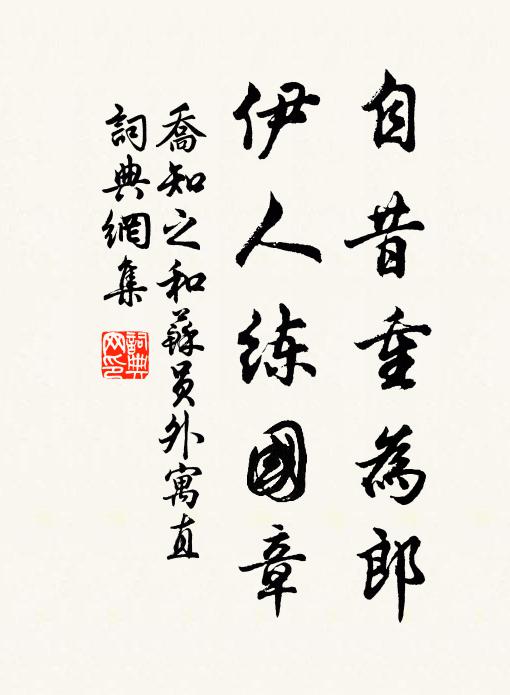 自昔重為郎
伊人練國章
喬知之和蘇員外寓直
詞典網集
詞典網印